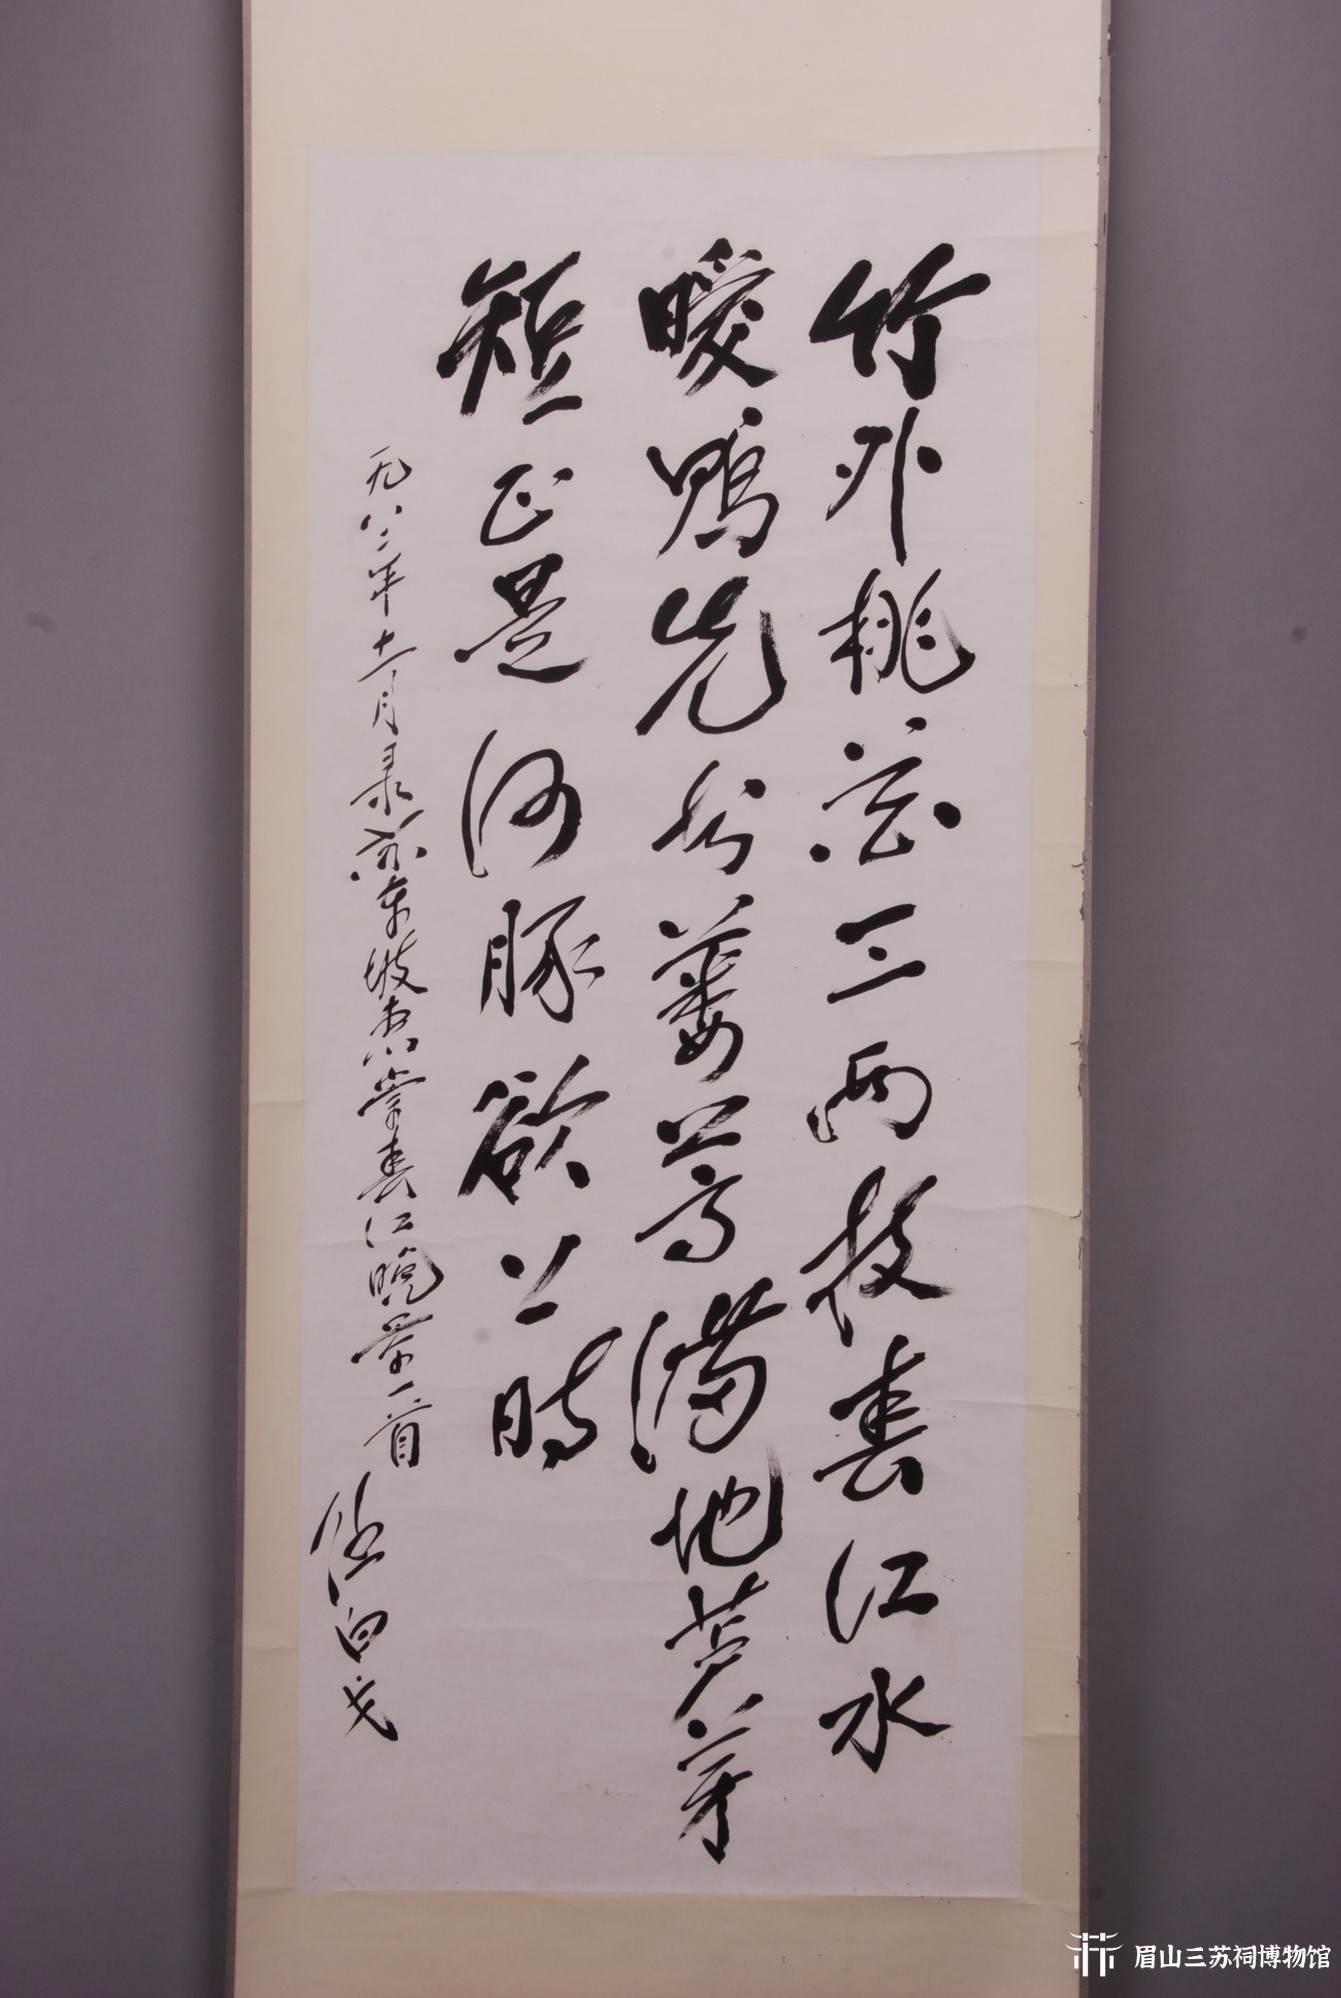 竹外桃花三两枝春江水
暖鸭先知蒌蒿满地芦芽
短正是河豚欲上时
一九八二年十一月录苏东坡惠崇春江晚景一首
任白戈
眉山三苏祠博物馆